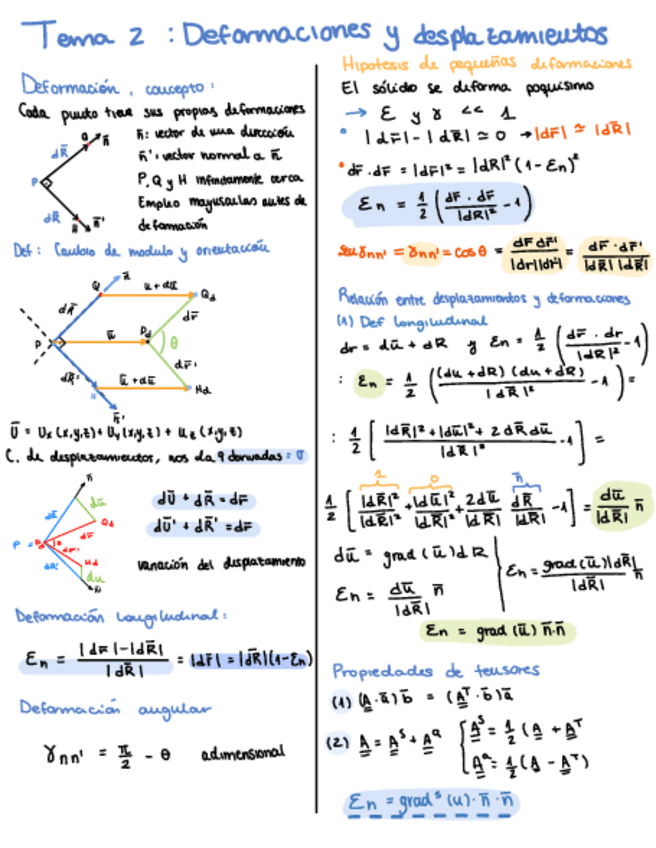 Tema 2 : Deformaciones y desplazamientos
Deformación, concepto:
Cada punto tiene sus propias deformaciones
Q n̄
dR̄
P
dR̄ H n̄'
n̄: vector de una dirección
n̄': vector normal a n̄
P, Q y H infinitamente cerca
Empleo mayusculas antes de
deformación
Def: Cambio de modulo y orientación
n̄
Q ū + dū Qd
dR̄ dr̄
P ū Pd θ
dr̄'
dR̄' ū + dū Hd
H
n̄'
Ū = Ux (x,y,z) + Uy (x,y,z) + Uz (x,y,z)
C. de desplazamientos, nos da 9 derivadas = σ
n̄
dū
dR̄ Qd
dr̄
P = Pd θ
dr̄'
dR̄' Hd
dū
n̄'
dŪ + dR̄ = dr̄
dŪ' + dR̄' = dr̄
variación del desplazamiento
Deformación Longitudinal:
εn = |dr̄| - |dR̄| / |dR̄| = |dr̄| = |dR̄|(1-εn)
Deformación angular
γnn' = π/2 - θ adimensional
Hipotesis de pequeñas deformaciones
El sólido se deforma poquísimo
→ ε y γ << 1
• |dr̄| - |dR̄| ≃ 0 → |dr̄| ≃ |dR̄|
• dr̄ . dr̄ = |dr̄|² = |dR̄|² (1 - εn)²
εn = 1/2 (dr̄ . dr̄ / |dR|² - 1)
sen γnn' = γnn' = cos θ = dr̄ dr̄' / |dr||dr'| = dr̄ · dr̄' / |dR̄| |dR̄|
Relación entre desplazamientos y deformaciones
(1) Def Longitudinal
dr = dū + dR y εn = 1/2 (dr̄ . dr / |dR|² - 1)
: εn = 1/2 ((du + dR) (du + dR) / |dR̄|² - 1) =
: 1/2 [|dR̄|² + |dū|² + 2 dR̄ dū / |dR̄|² - 1] =
1 0 n̄
1/2 [|dR̄|² / |dR̄|² + |dū|² / |dR̄|² + 2dū / |dR̄| dR̄ / |dR̄| - 1] = dū / |dR̄| n̄
dū = grad (ū) d R
εn = dū / |dR̄| n̄
εn = grad(ū)|dR̄| / |dR̄| n̄
εn = grad (ū) n̄·n̄
Propiedades de tensores
(1) (A · ā) b̄ = (Aᵀ · b̄) ā
(2) A = Aˢ + Aᵃ
Aˢ = 1/2 (A + Aᵀ
Aᵃ = 1/2 (A - Aᵀ)
εn = gradˢ (u) · n̄ · n̄